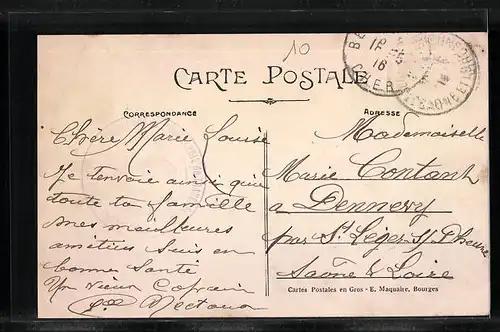 10
CARTE POSTALE
CORRESPONDANCE
ADRESSE
Chère Marie Louise
Je t'envoie ainsi qu'à
toute ta famille
mes meilleures
amitiées suis en
bonne Santé
Un vieux Copain
Mademoiselle
Marie Contant
a Dennevy
par St Léger S/ Dheune
Saône & Loire
Cartes Postales en Gros - E. Maquaire, Bourges
CHER